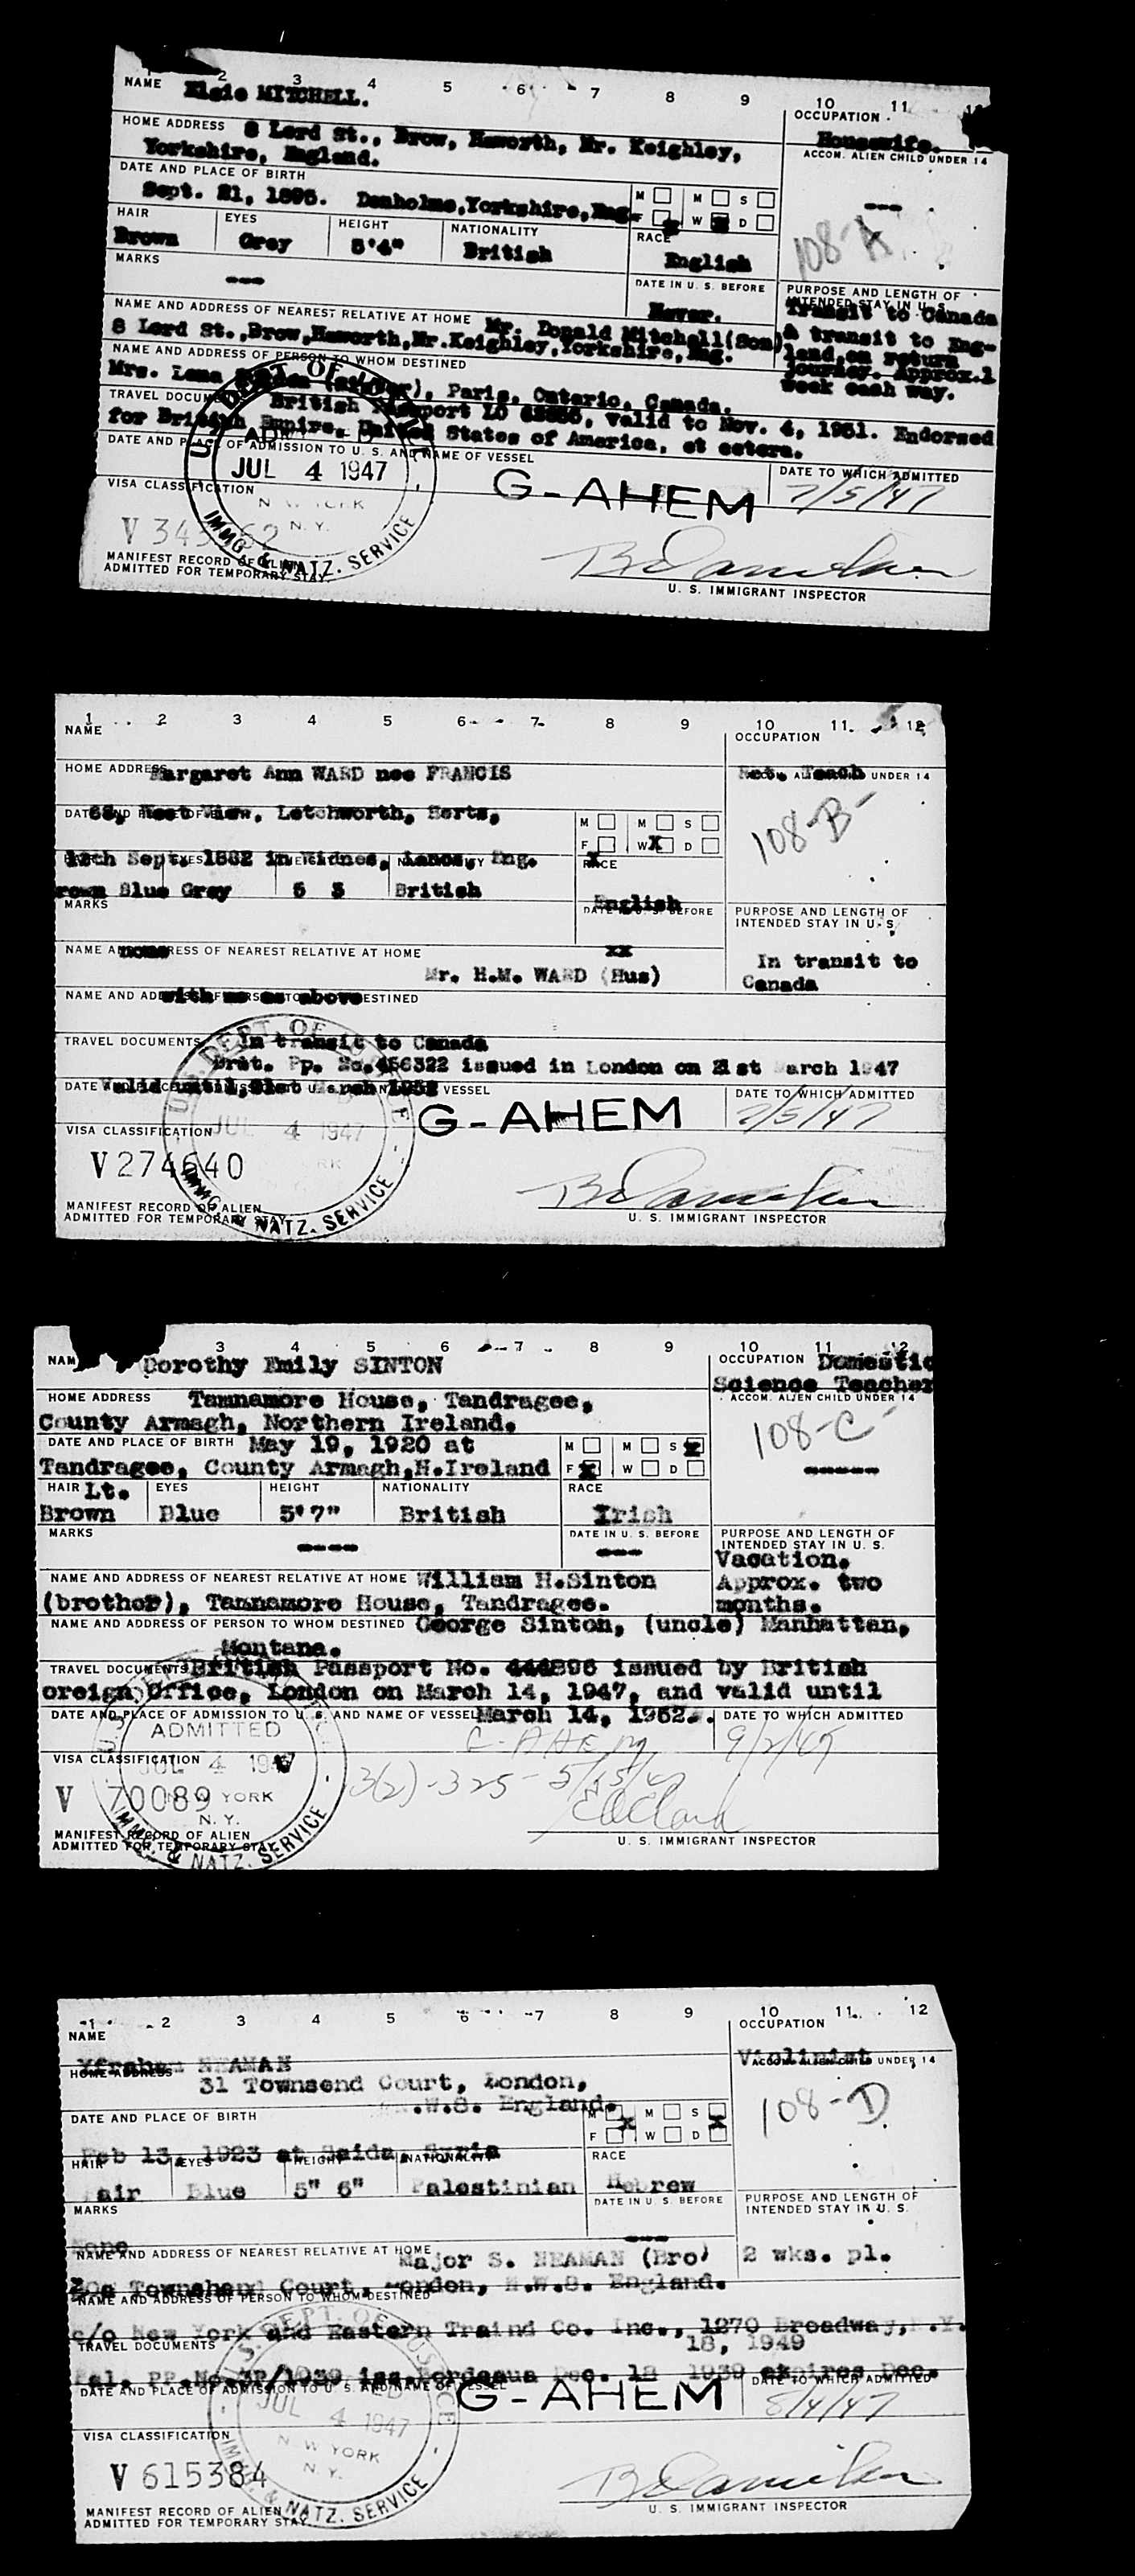 1 2 3 4 5 6 7 8 9 10 11 12
NAME Elsie MITCHELL.
OCCUPATION
Housewife.
HOME ADDRESS 8 Lord St., Brow, Haworth, Nr. Keighley,
Yorkshire, England.
ACCOM. ALIEN CHILD UNDER 14
---
108-A
DATE AND PLACE OF BIRTH
Sept. 21, 1895. Denholme, Yorkshire, Eng.
M M S
F W D
HAIR EYES HEIGHT NATIONALITY RACE
Brown Grey 5'4" British English
MARKS
---
DATE IN U. S. BEFORE
Never.
PURPOSE AND LENGTH OF
INTENDED STAY IN U. S.
Transit to Canada
& transit to Eng-
land, on return
journey. Approx. 1
week each way.
NAME AND ADDRESS OF NEAREST RELATIVE AT HOME Mr. Donald Mitchell (Son)
8 Lord St., Brow, Haworth, Nr. Keighley, Yorkshire, Eng.
NAME AND ADDRESS OF PERSON TO WHOM DESTINED
Mrs. Lena (Sister), Paris, Ontario, Canada.
TRAVEL DOCUMENTS British Passport LO valid to Nov. 4, 1951. Endorsed
for British Empire, United States of America, et cetera.
DATE AND PLACE OF ADMISSION TO U. S. AND NAME OF VESSEL
U. S. DEPT. OF JUSTICE
ADMITTED
JUL 4 1947
NEW YORK
N. Y.
IMMG. & NATZ. SERVICE
G-AHEM
DATE TO WHICH ADMITTED
7/5/47
VISA CLASSIFICATION
MANIFEST RECORD OF ALIEN
ADMITTED FOR TEMPORARY STAY
U. S. IMMIGRANT INSPECTOR
1 2 3 4 5 6 7 8 9 10 11 12
NAME
OCCUPATION
HOME ADDRESS
Margaret Ann WARD nee FRANCIS
Ret. Teach
ACCOM. ALIEN CHILD UNDER 14
108-B
DATE AND PLACE OF BIRTH
68, West View, Letchworth, Herts,
M M S
F W X D
X
12th Sept. 1882 in Widnes, Lancs, Eng.
HAIR EYES HEIGHT NATIONALITY RACE
Brown Blue Grey 5 3 British English
MARKS
DATE IN U. S. BEFORE
xx
PURPOSE AND LENGTH OF
INTENDED STAY IN U. S.
In transit to
Canada
none
NAME AND ADDRESS OF NEAREST RELATIVE AT HOME
Mr. H.M. WARD (Hus)
NAME AND ADDRESS OF PERSON TO WHOM DESTINED
with me as above
TRAVEL DOCUMENTS In transit to Canada
Brit. Pp. No. 456322 issued in London on 21st March 1947
DATE AND PLACE OF ADMISSION TO U. S. AND NAME OF VESSEL
valid until, 21st March 1952
U. S. DEPT. OF JUSTICE
JUL 4 1947
IMMG. & NATZ. SERVICE
G-AHEM
DATE TO WHICH ADMITTED
7/5/47
VISA CLASSIFICATION
V 274640
MANIFEST RECORD OF ALIEN
ADMITTED FOR TEMPORARY STAY
U. S. IMMIGRANT INSPECTOR
3 4 5 6 7 8 9 10 11 12
NAME Dorothy Emily SINTON
OCCUPATION Domestic
Science Teacher
HOME ADDRESS Tamnamore House, Tandragee,
County Armagh, Northern Ireland.
ACCOM. ALIEN CHILD UNDER 14
108-C
-----
DATE AND PLACE OF BIRTH May 19, 1920 at
Tandragee, County Armagh, N.Ireland
M M S X
F X W D
HAIR Lt. EYES HEIGHT NATIONALITY RACE
Brown Blue 5'7" British Irish
MARKS
----
DATE IN U. S. BEFORE
---
PURPOSE AND LENGTH OF
INTENDED STAY IN U. S.
Vacation.
Approx. two
months.
NAME AND ADDRESS OF NEAREST RELATIVE AT HOME William H.Sinton
(brother), Tamnamore House, Tandragee.
NAME AND ADDRESS OF PERSON TO WHOM DESTINED George Sinton, (uncle) Manhattan,
Montana.
TRAVEL DOCUMENTS British Passport No. 444896 issued by British
oreign Office, London on March 14, 1947, and valid until
DATE AND PLACE OF ADMISSION TO U. S. AND NAME OF VESSEL March 14, 1952.
DATE TO WHICH ADMITTED
ADMITTED
JUL 4 1947
NEW YORK
N. Y.
IMMG. & NATZ. SERVICE
G-AHEM
9/2/47
VISA CLASSIFICATION
V 70089
3(2)-325-5/15/47
MANIFEST RECORD OF ALIEN
ADMITTED FOR TEMPORARY STAY
U. S. IMMIGRANT INSPECTOR
1 2 3 4 5 6 7 8 9 10 11 12
NAME
OCCUPATION
Yfrahem NEAMAN
Violinist
HOME ADDRESS
31 Townsend Court, London,
N.W.8. England.
ACCOM. ALIEN CHILD UNDER 14
108-D
DATE AND PLACE OF BIRTH
M X M S
F W D X
Feb 13, 1923 at Saida, Syria
HAIR EYES HEIGHT NATIONALITY RACE
Fair Blue 5" 6" Palestinian Hebrew
MARKS
DATE IN U. S. BEFORE
---
PURPOSE AND LENGTH OF
INTENDED STAY IN U. S.
2 wks. pl.
None
NAME AND ADDRESS OF NEAREST RELATIVE AT HOME
Major S. NEAMAN (Bro)
Townshend Court, London, N.W.8. England.
NAME AND ADDRESS OF PERSON TO WHOM DESTINED
c/o New York and Eastern Traind Co. Inc., 1270 Broadway, N.Y.
TRAVEL DOCUMENTS
18, 1949
Pal. PP.No.3P/1039 iss.Bordeaux Dec. 18 1939 expires Dec.
DATE AND PLACE OF ADMISSION TO U. S. AND NAME OF VESSEL
G-AHEM
DATE TO WHICH ADMITTED
8/4/47
U. S. DEPT. OF JUSTICE
JUL 4 1947
NEW YORK
N. Y.
IMMG. & NATZ. SERVICE
VISA CLASSIFICATION
V 615384
MANIFEST RECORD OF ALIEN
ADMITTED FOR TEMPORARY STAY
U. S. IMMIGRANT INSPECTOR